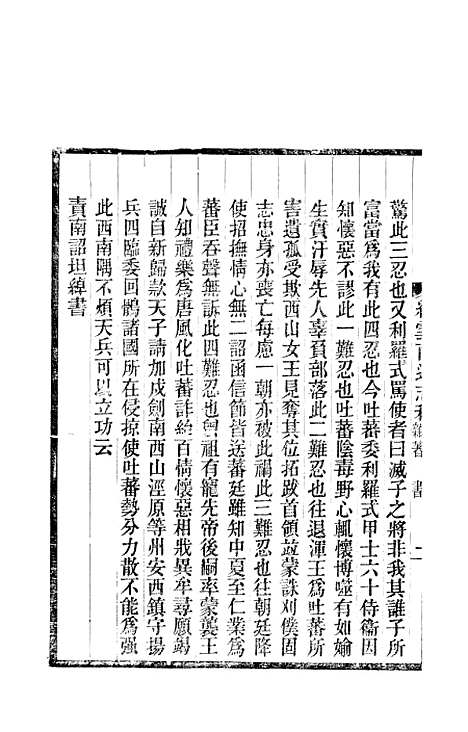 驚此三忍也又利羅式罵使者曰滅子之將非我其誰子所
富當為我有此四忍也今吐蕃委利羅式甲士六十侍衞因
知懷惡不謬此一難忍也吐蕃陰毒野心輒懷博噬有如媮
生實汙辱先人辜負部落此二難忍也往退渾王為吐蕃所
害遺孤受欺西山女王見奪其位拓跋首領竝蒙誅刈僕固
志忠身亦喪亡每慮一朝亦被此禍此三難忍也往朝廷降
使招撫情心無二詔函信節皆送蕃廷雖知中夏至仁業為
蕃臣吞聲無訴此四難忍也曾祖有寵先帝後嗣率蒙襲王
人知禮樂為唐風化吐蕃詐紿百情懷惡相戕異牟尋願竭
誠自新歸款天子請加戍劍南西山涇原等州安西鎮守揚
兵四臨委回鶻諸國所在侵掠使吐蕃勢分力散不能為强
此西南隅不煩天兵可以立功云
責南詔坦綽書
雜著
書
二